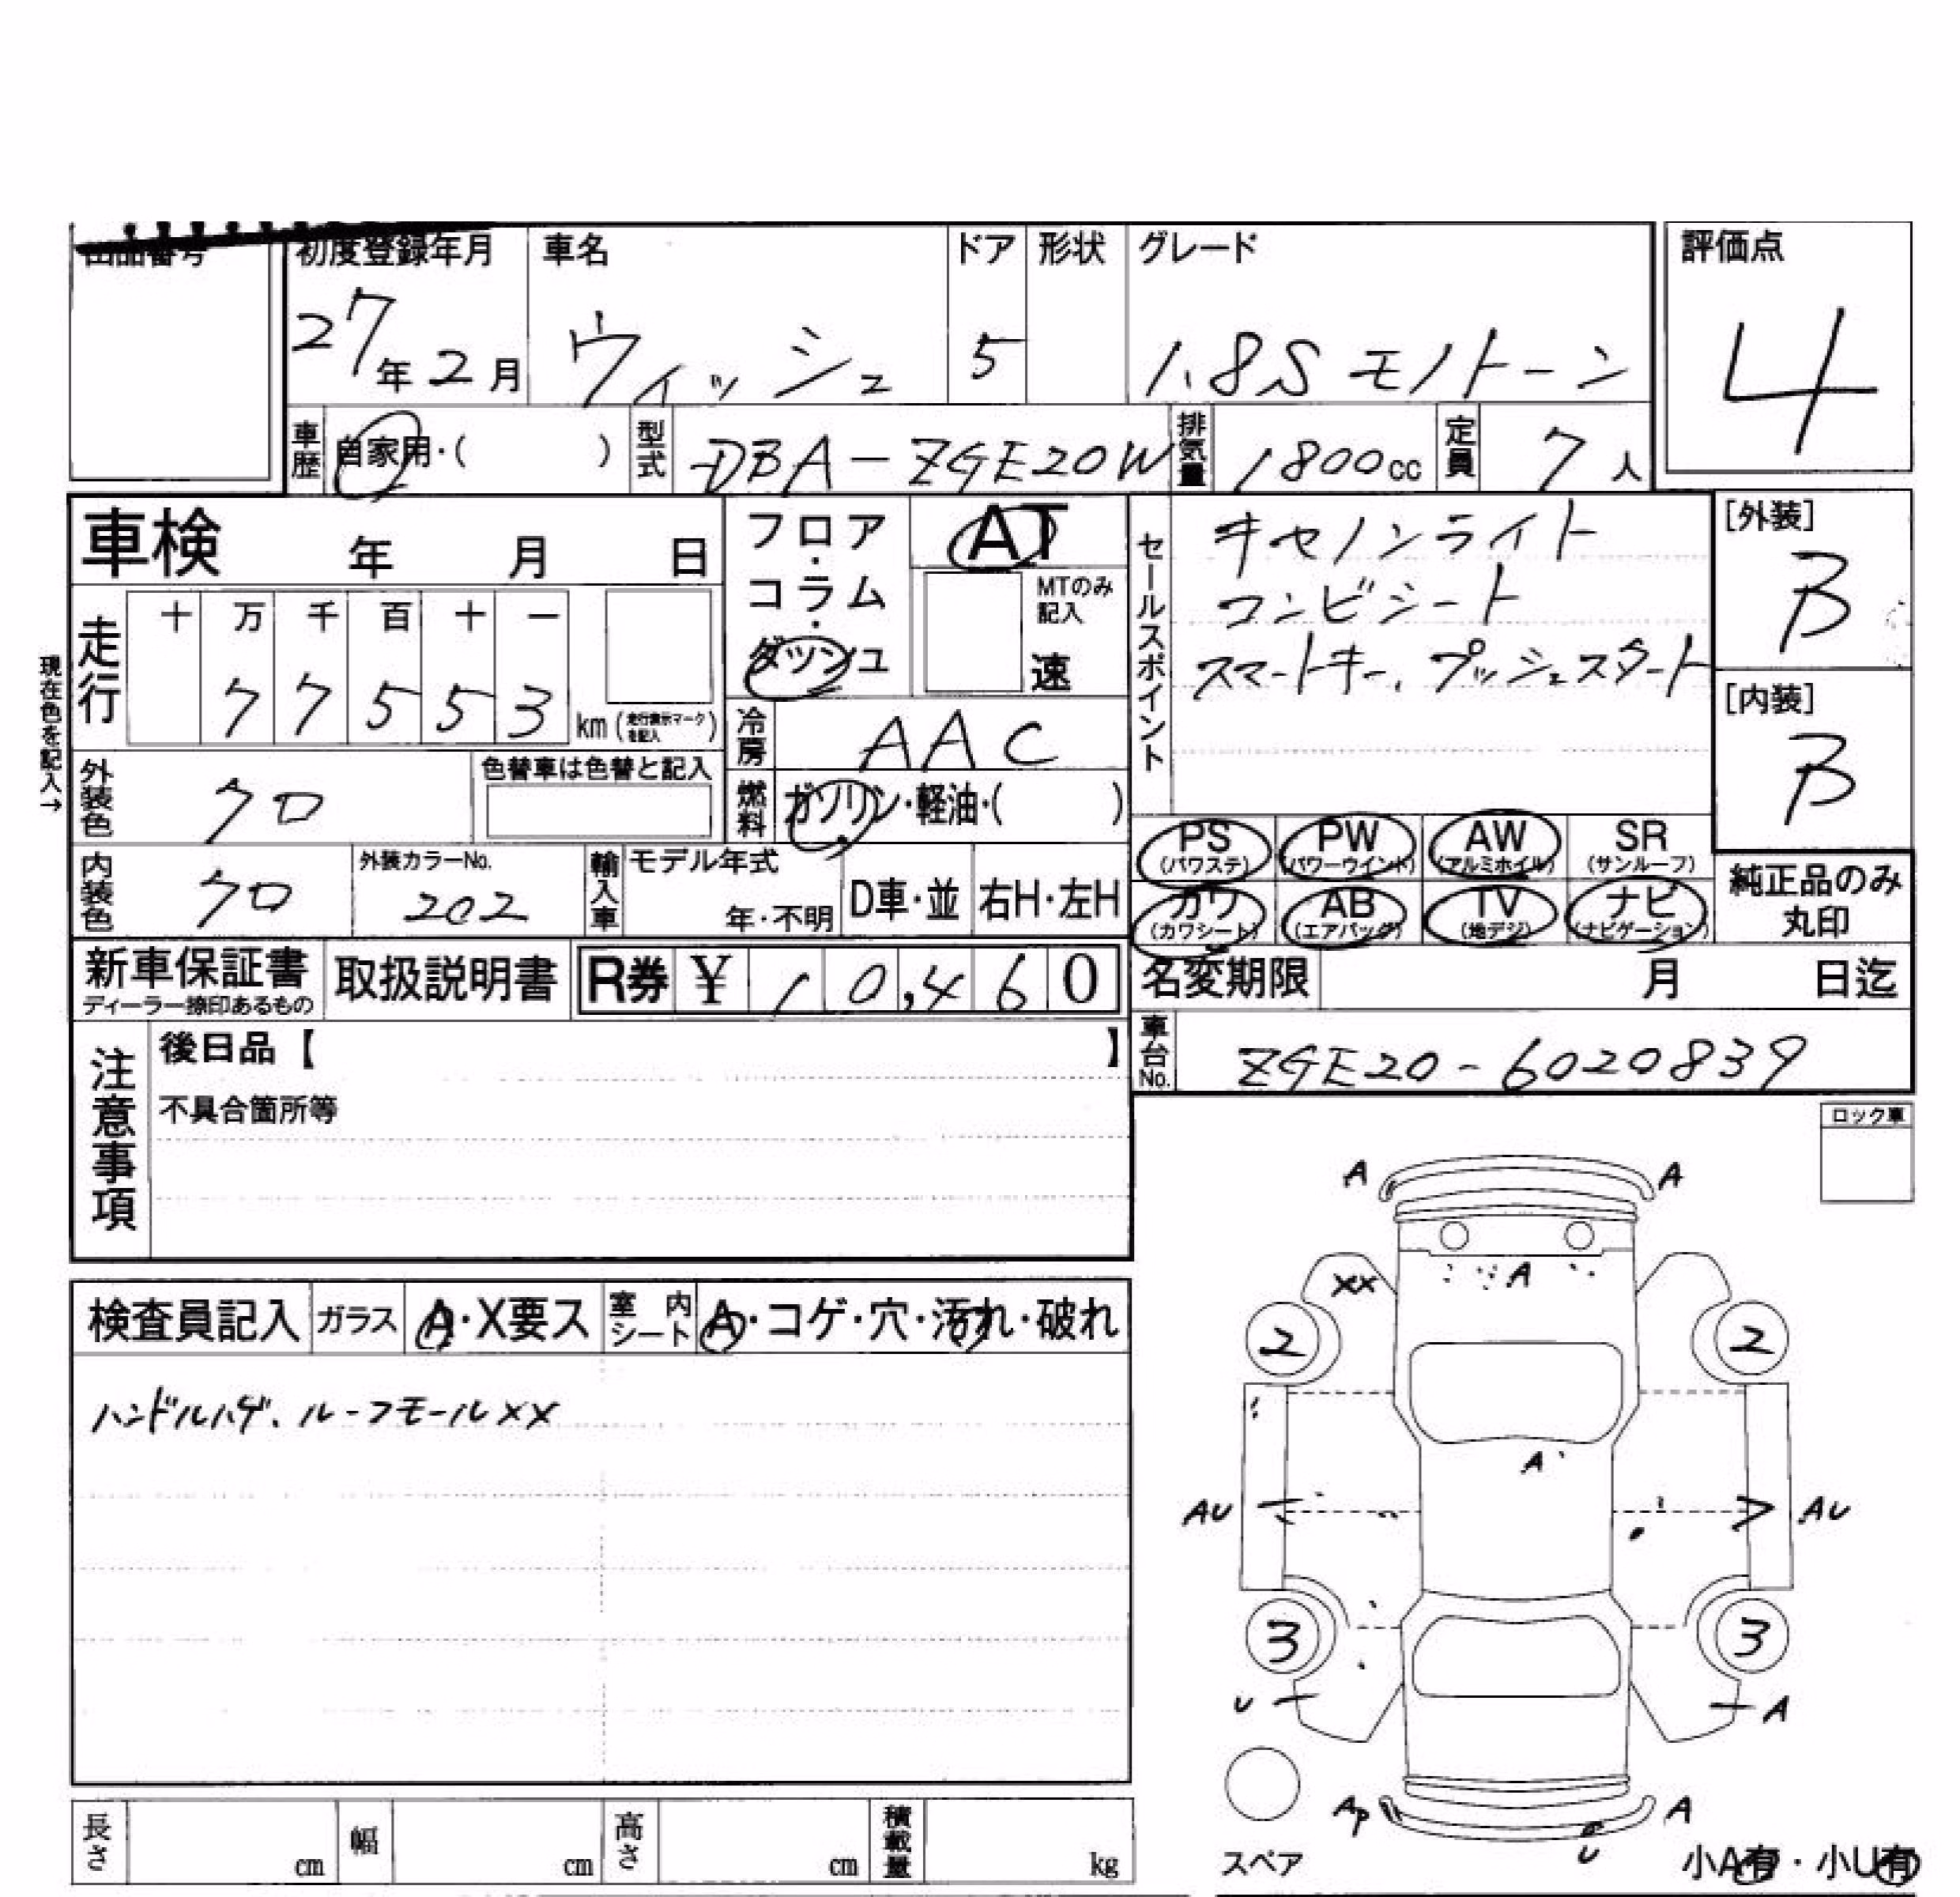 出品番号 初度登録年月 車名 ドア 形状 グレード 評価点
27年2月 ウィッシュ 5 1.8S モノトーン 4
車歴 自家用・( ) 型式 DBA-ZGE20W 排気量 1800cc 定員 7人
車検 年 月 日
フロア・コラム・ダッシュ
AT
MTのみ記入
速
セールスポイント
キセノンライト
コンビシート
スマートキー、プッシュスタート
[外装]
B
[内装]
B
現在色を記入→
走行 十 万 千 百 十 一
7 7 5 5 3 km (走行表示マークを記入)
冷房 AAC
外装色 クロ 色替車は色替と記入
燃料 ガソリン・軽油・( )
PS (パワステ) PW (パワーウインド) AW (アルミホイル) SR (サンルーフ)
カワ (カワシート) AB (エアバッグ) TV (地デジ) ナビ (ナビゲーション)
純正品のみ
丸印
内装色 クロ 外装カラーNo. 202 輸入車 モデル年式 年・不明 D車・並 右H・左H
新車保証書 ディーラー捺印あるもの 取扱説明書 R券 ¥ 10,460
名変期限 月 日迄
車台No. ZGE20-6020839
注意事項
後日品【 】
不具合箇所等
ロック車
検査員記入 ガラス A・X要ス 室内シート A・コゲ・穴・汚れ・破れ
ハンドルハゲ、ルーフモールXX
A A
XX A
2 2
A
AU AU
3 3
U A
AP A
U
スペア
小A有・小U有
長さ cm 幅 cm 高さ cm 積載量 kg